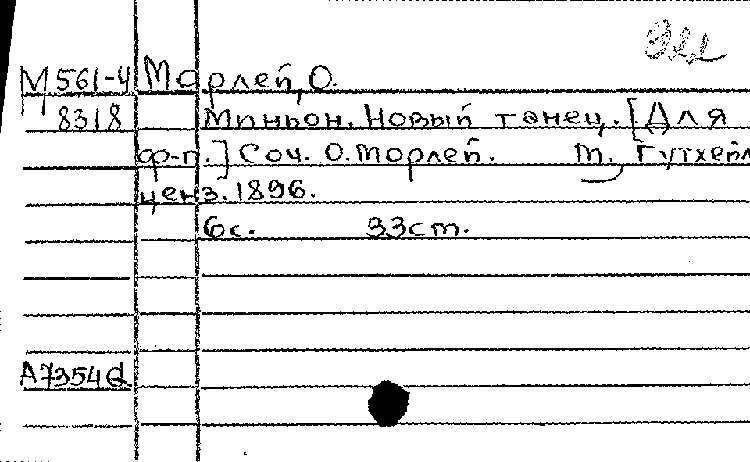 М561-4 Морлей, О.
8318 Миньон. Новый танец. [Для
ф-п.] Соч. О. Морлей. М., Гутхейл
ценз. 1896.
6с. 33см.